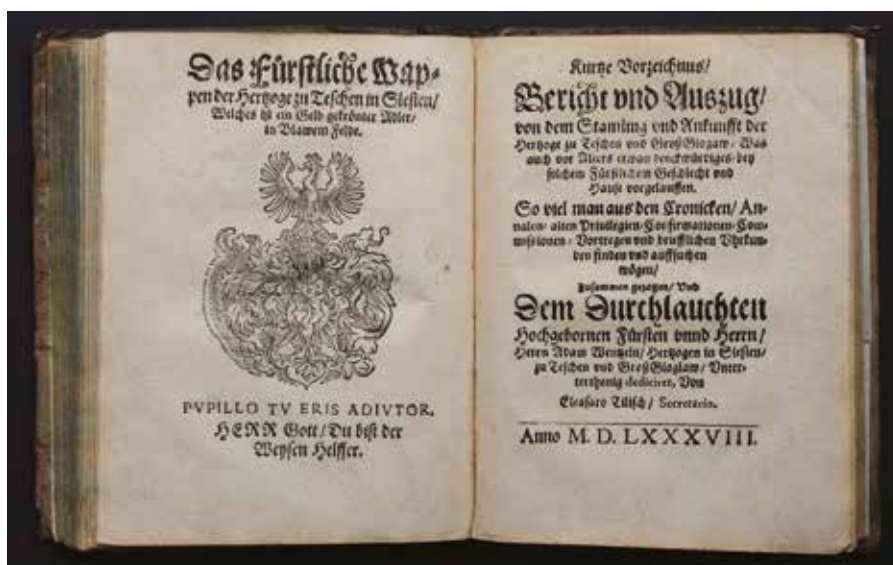 Das Fürstliche Wap-
pen der Hertzoge zu Teschen in Slesien/
Welches ist ein Gelb gekrönter Adler/
in Blawem Felde.
PVPILLO TV ERIS ADIVTOR.
HERR Gott/Du bist der
Weysen Helffer.
Kurtze Vorzeichnus/
Bericht vnd Auszug/
von dem Stamling vnd Ankunfft der
Hertzoge zu Teschen vnd GroßGlogaw/ Was
auch vor Alters etwan denckwürdiges/bey
solchem Fürstlichem Geschlecht vnd
Hause vorgelauffen.
So viel man aus den Cronicken/ An-
nalen/ alten Priuilegien/Confirmationen/Com-
missionen/ Vortregen vnd briefflichen Vhrkun-
den finden vnd auffsuchen
mögen/
Zusammen gezogen/ Vnd
Dem Durchlauchten
Hochgebornen Fürsten vnnd Herrn/
Herrn Adam Wentzeln/ Hertzogen in Slesien/
zu Teschen vnd GroßGloglaw/ Vnter-
terthenig dediciret, Von
Eleasaro Tilisch/ Secretario.
Anno M. D. LXXXVIII.